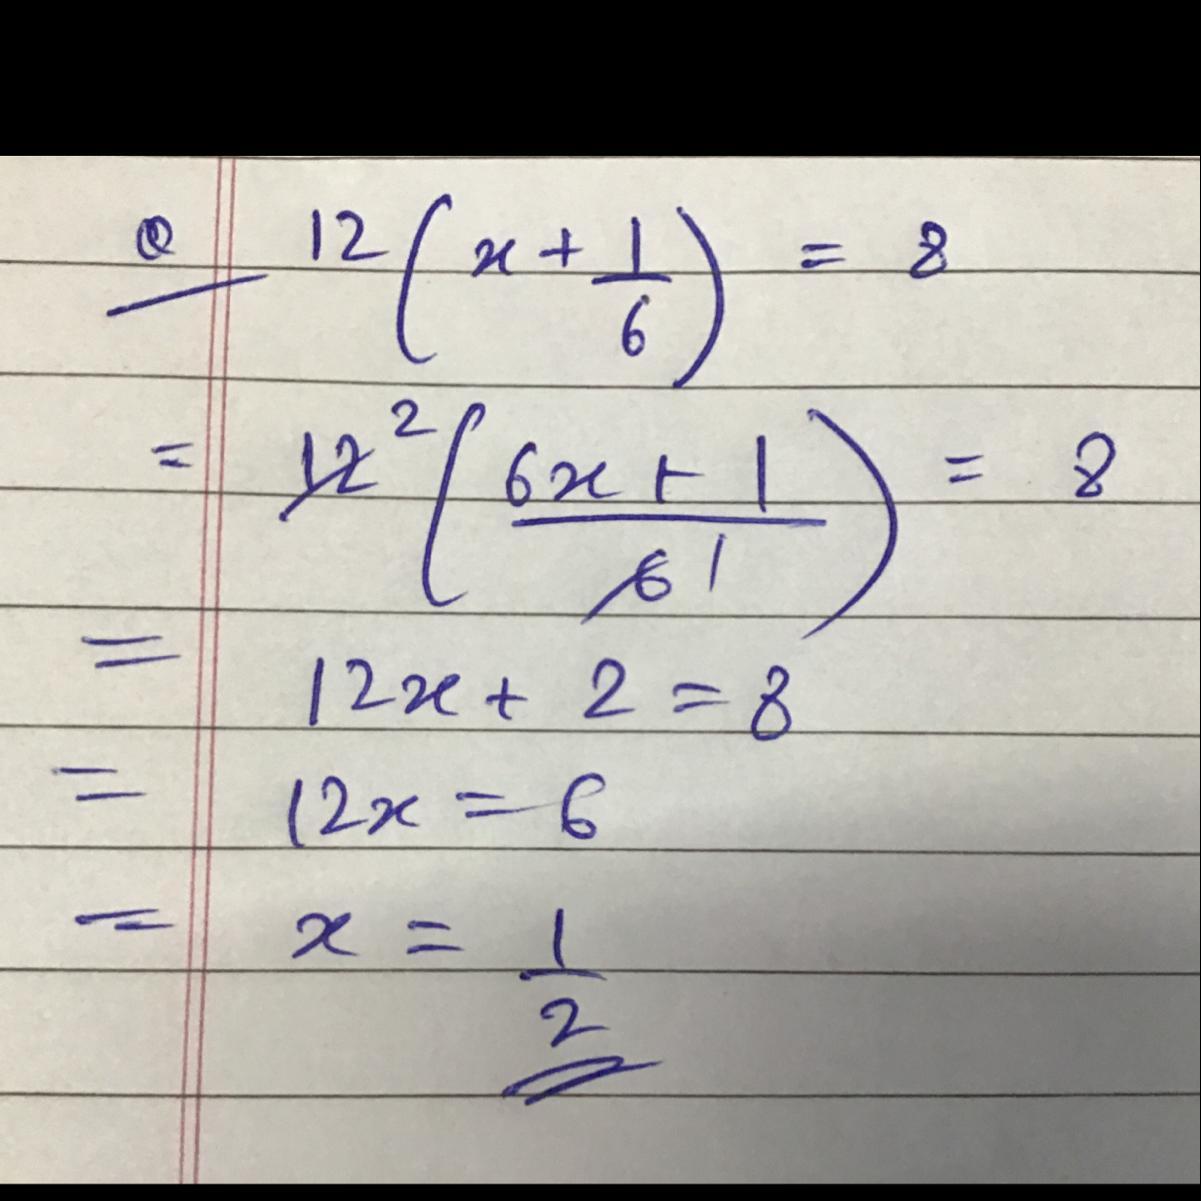 Q 12(x + 1/6) = 8
= 12 2 (6x + 1 / 6 1) = 8
= 12x + 2 = 8
= 12x = 6
= x = 1/2